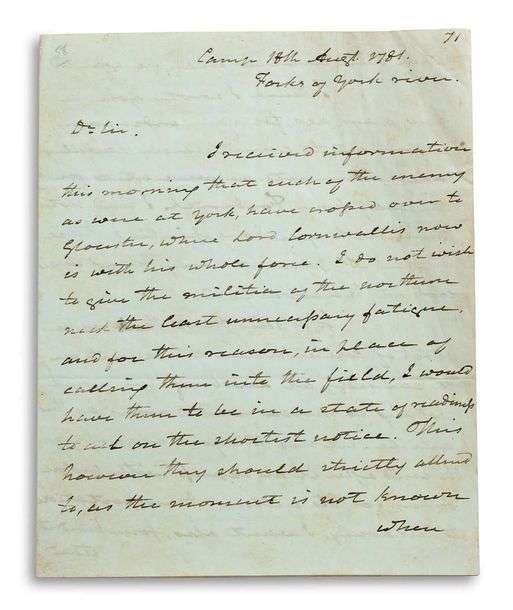 71
Camp 18th Augt. 1781.
Forks of York river.
Dr Sir.
I received information
this morning that such of the enemy
as were at York, have crossed over to
Glocester, where Lord Cornwallis now
is with his whole force. I do not wish
to give the militia of the northern
neck the least unnecessary fatigue.
and for this reason, in place of
calling them into the field, I would
have them to be in a state of readiness
to act on the shortest notice. This
however they should strictly attend
to, as the moment is not known
when